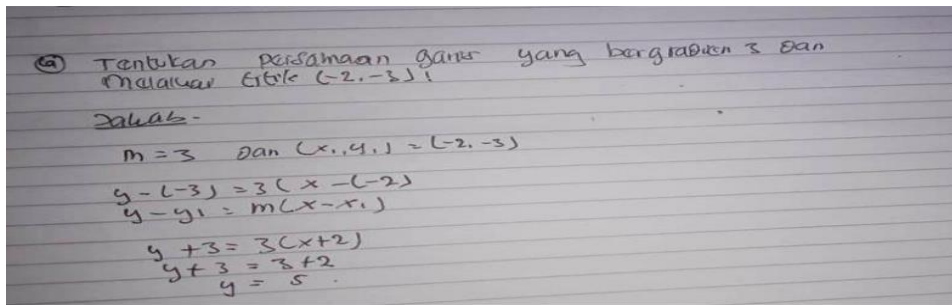 a Tentukan persamaan garis yang bergradien 3 dan
melalui titik (-2, -3)!
Jawab -
m = 3 dan (x₁, y₁) = (-2, -3)
y - (-3) = 3 ( x - (-2)
y - y₁ = m(x - x₁)
y + 3 = 3(x+2)
y + 3 = 3 + 2
y = 5 .